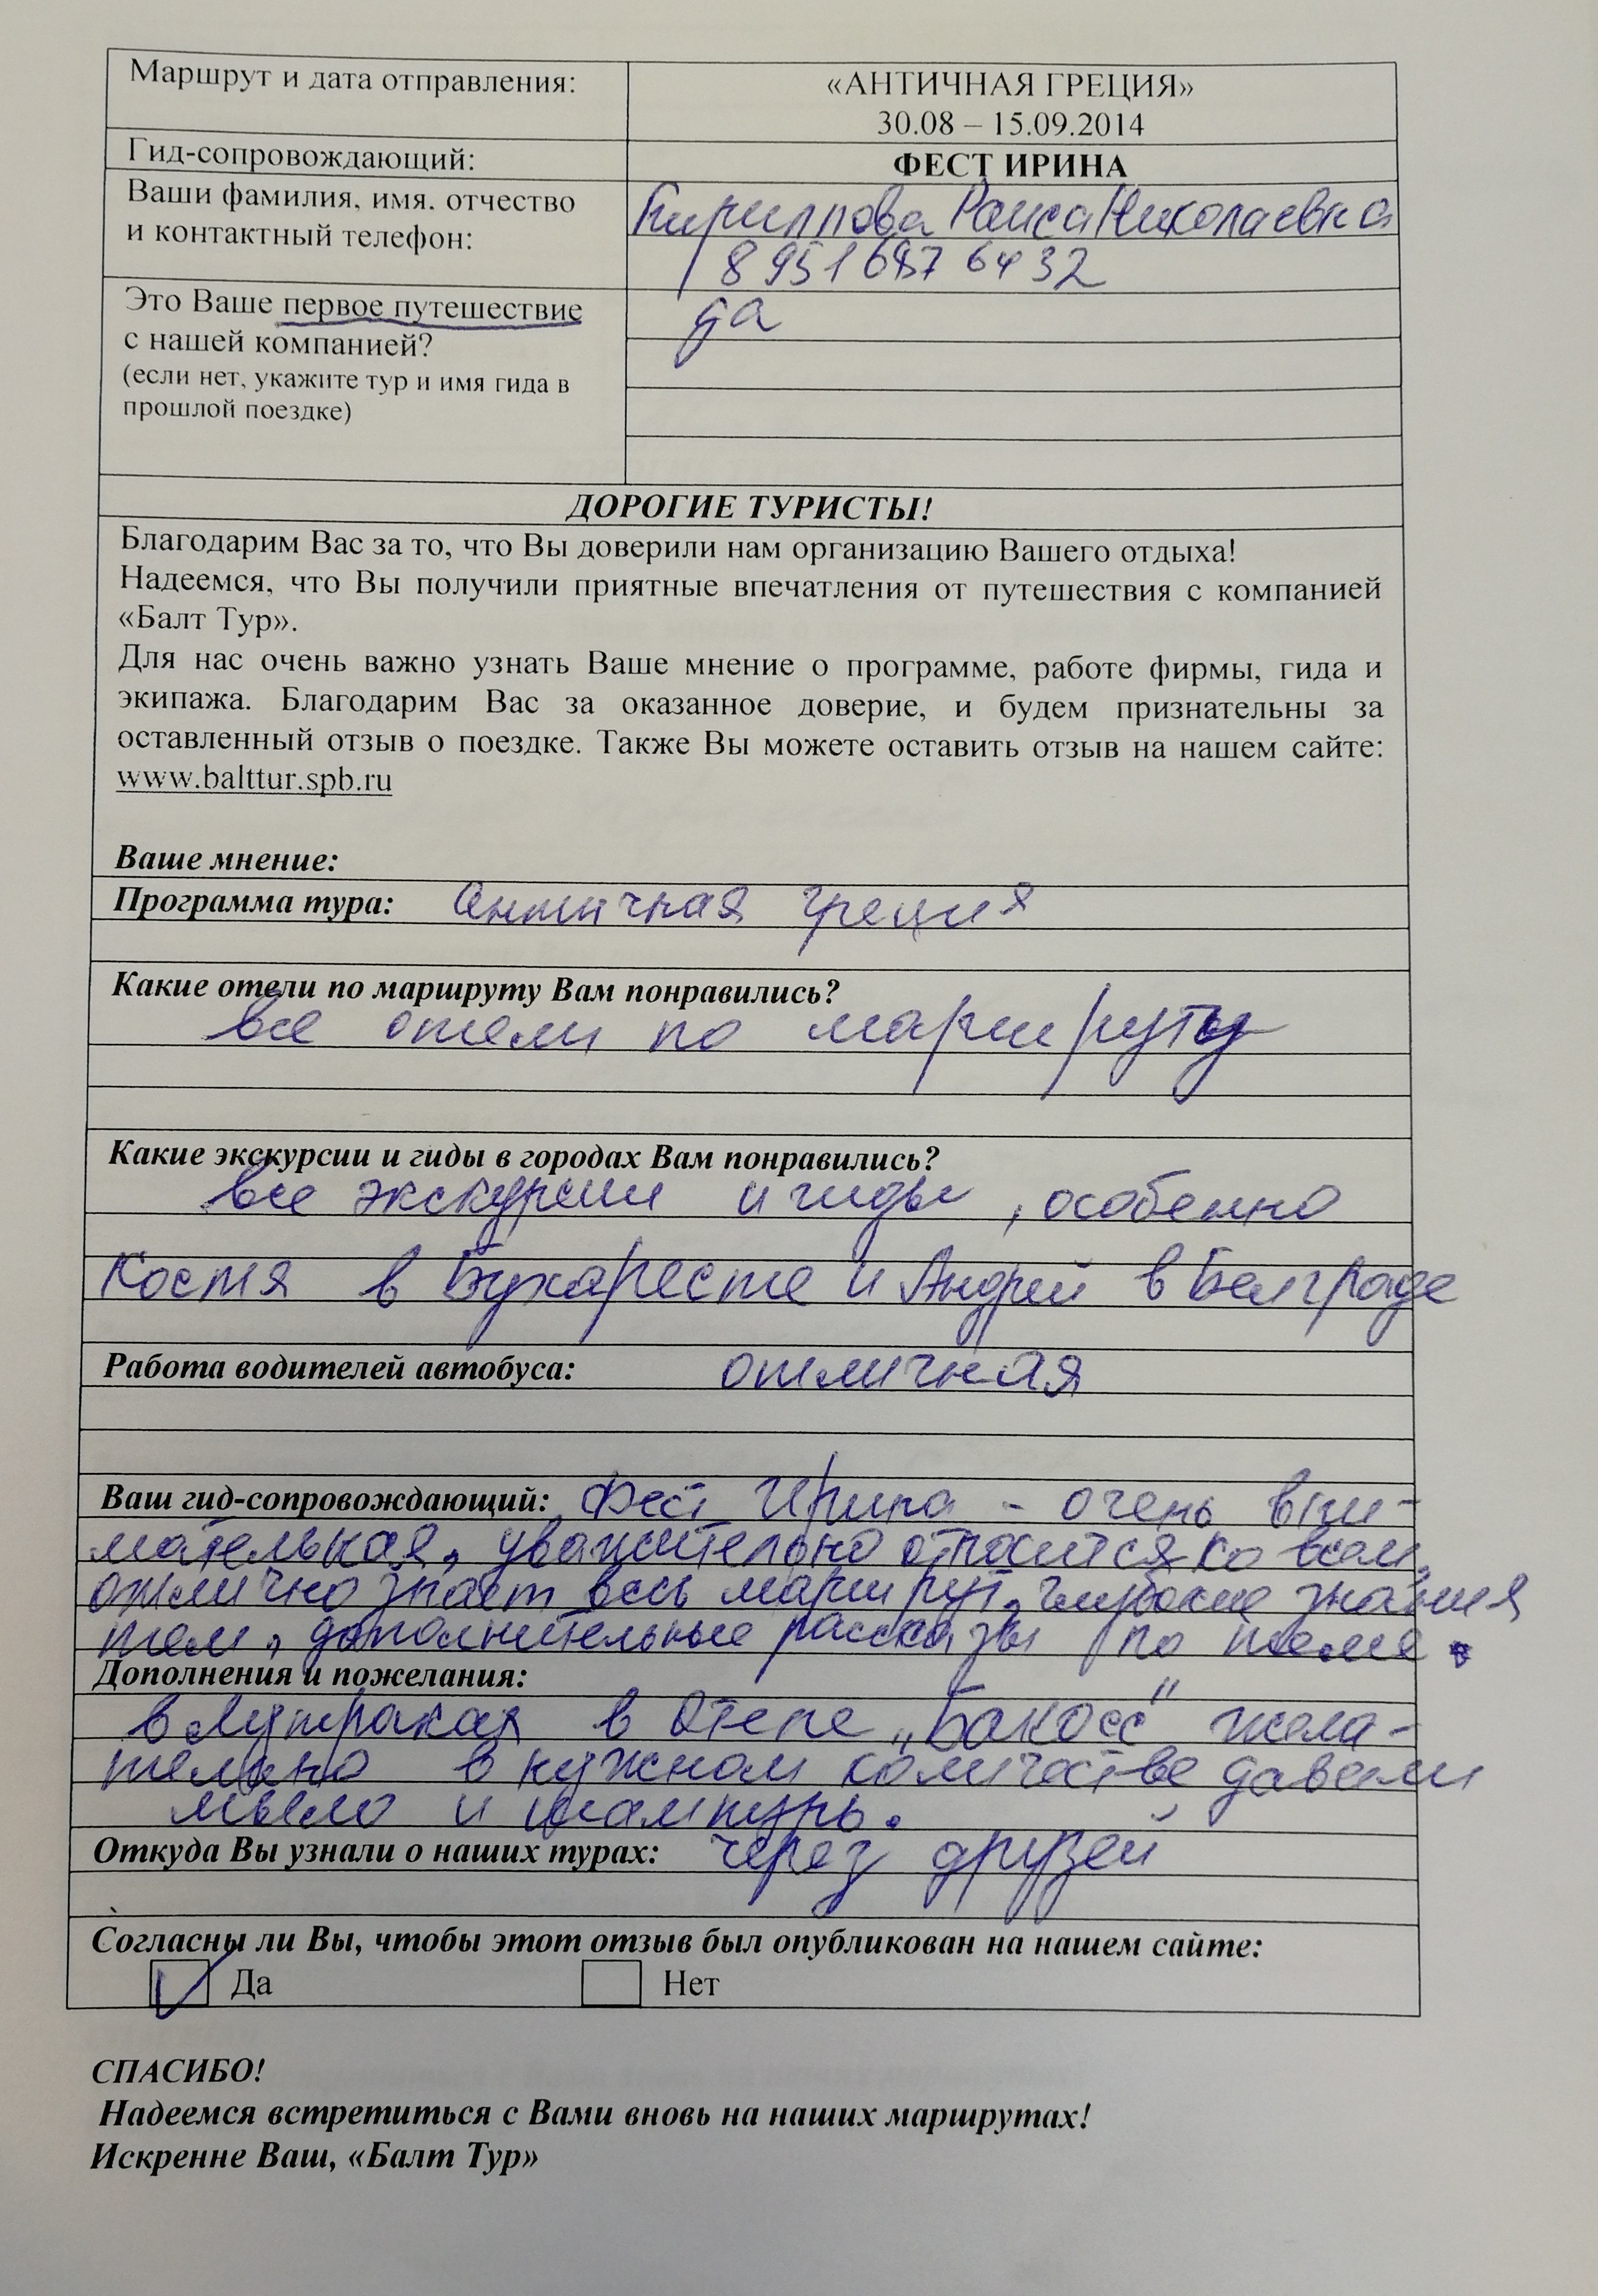 Маршрут и дата отправления:
«АНТИЧНАЯ ГРЕЦИЯ»
30.08 – 15.09.2014
Гид-сопровождающий:
ФЕСТ ИРИНА
Ваши фамилия, имя. отчество
и контактный телефон:
Кириллова Раиса Николаевна
8 951 687 64 32
Это Ваше первое путешествие
с нашей компанией?
(если нет, укажите тур и имя гида в
прошлой поездке)
да
ДОРОГИЕ ТУРИСТЫ!
Благодарим Вас за то, что Вы доверили нам организацию Вашего отдыха!
Надеемся, что Вы получили приятные впечатления от путешествия с компанией
«Балт Тур».
Для нас очень важно узнать Ваше мнение о программе, работе фирмы, гида и
экипажа. Благодарим Вас за оказанное доверие, и будем признательны за
оставленный отзыв о поездке. Также Вы можете оставить отзыв на нашем сайте:
www.balttur.spb.ru
Ваше мнение:
Программа тура: Античная Греция
Какие отели по маршруту Вам понравились?
все отели по маршруту
Какие экскурсии и гиды в городах Вам понравились?
все экскурсии и гиды, особенно
Костя в Бухаресте и Андрей в Белграде
Работа водителей автобуса: отличная
Ваш гид-сопровождающий: Фест Ирина - очень вни-
мательная, уважительно относится ко всем,
отлично знает весь маршрут, глубокие знания
тем, дополнительные рассказы по теме.
Дополнения и пожелания:
в Лутраках в Отеле „Бакосс" жела-
тельно в нужном количестве давали
мыло и шампунь.
Откуда Вы узнали о наших турах: через друзей
Согласны ли Вы, чтобы этот отзыв был опубликован на нашем сайте:
Да Нет
СПАСИБО!
Надеемся встретиться с Вами вновь на наших маршрутах!
Искренне Ваш, «Балт Тур»